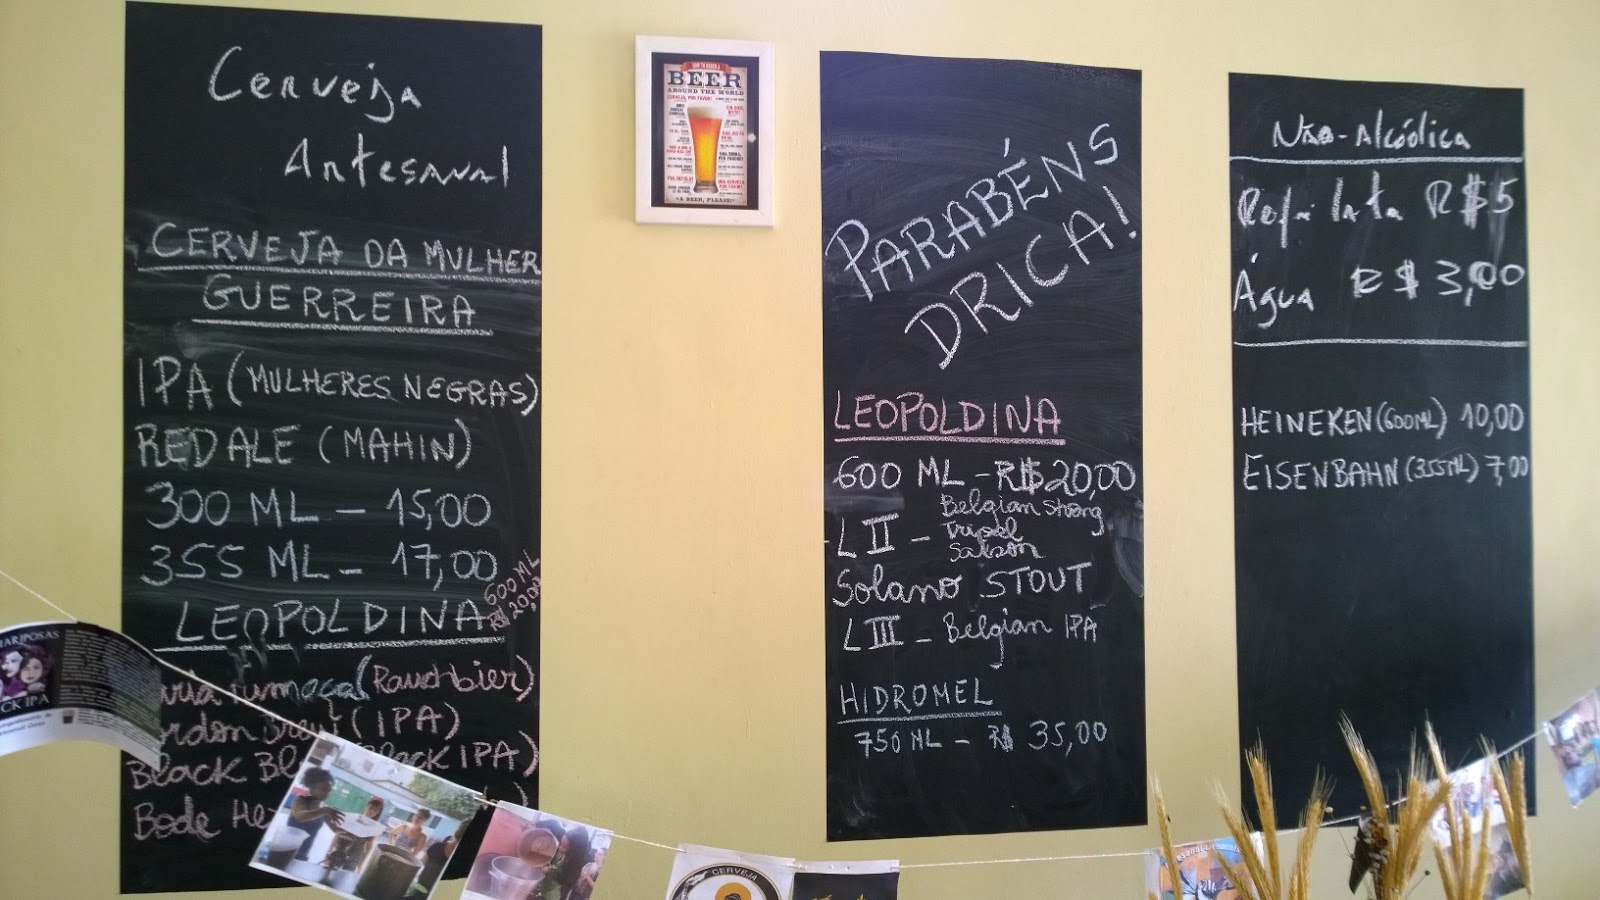 Cerveja
Artesanal
CERVEJA DA MULHER
GUERREIRA
IPA (MULHERES NEGRAS)
RED ALE (MAHIN)
300 ML – 15,00
355 ML – 17,00
600 ML
R$ 20,00
LEOPOLDINA
(Rauchbier)
(IPA)
Black IPA)
Bode
BEER
AROUND THE WORLD
CERVEJA, POR FAVOR!
"A BEER, PLEASE!"
PARABÉNS
DRICA!
LEOPOLDINA
600 ML – R$ 20,00
L II – Belgian Strong
Tripel
Saison
Solano STOUT
L III – Belgian IPA
HIDROMEL
750 ML – R$ 35,00
Não-Alcóolica
Refri lata R$5
Água R$ 3,00
HEINEKEN (600ML) 10,00
EISENBAHN (355ML) 7,00
MARIPOSAS
CK IPA
CERVEJA